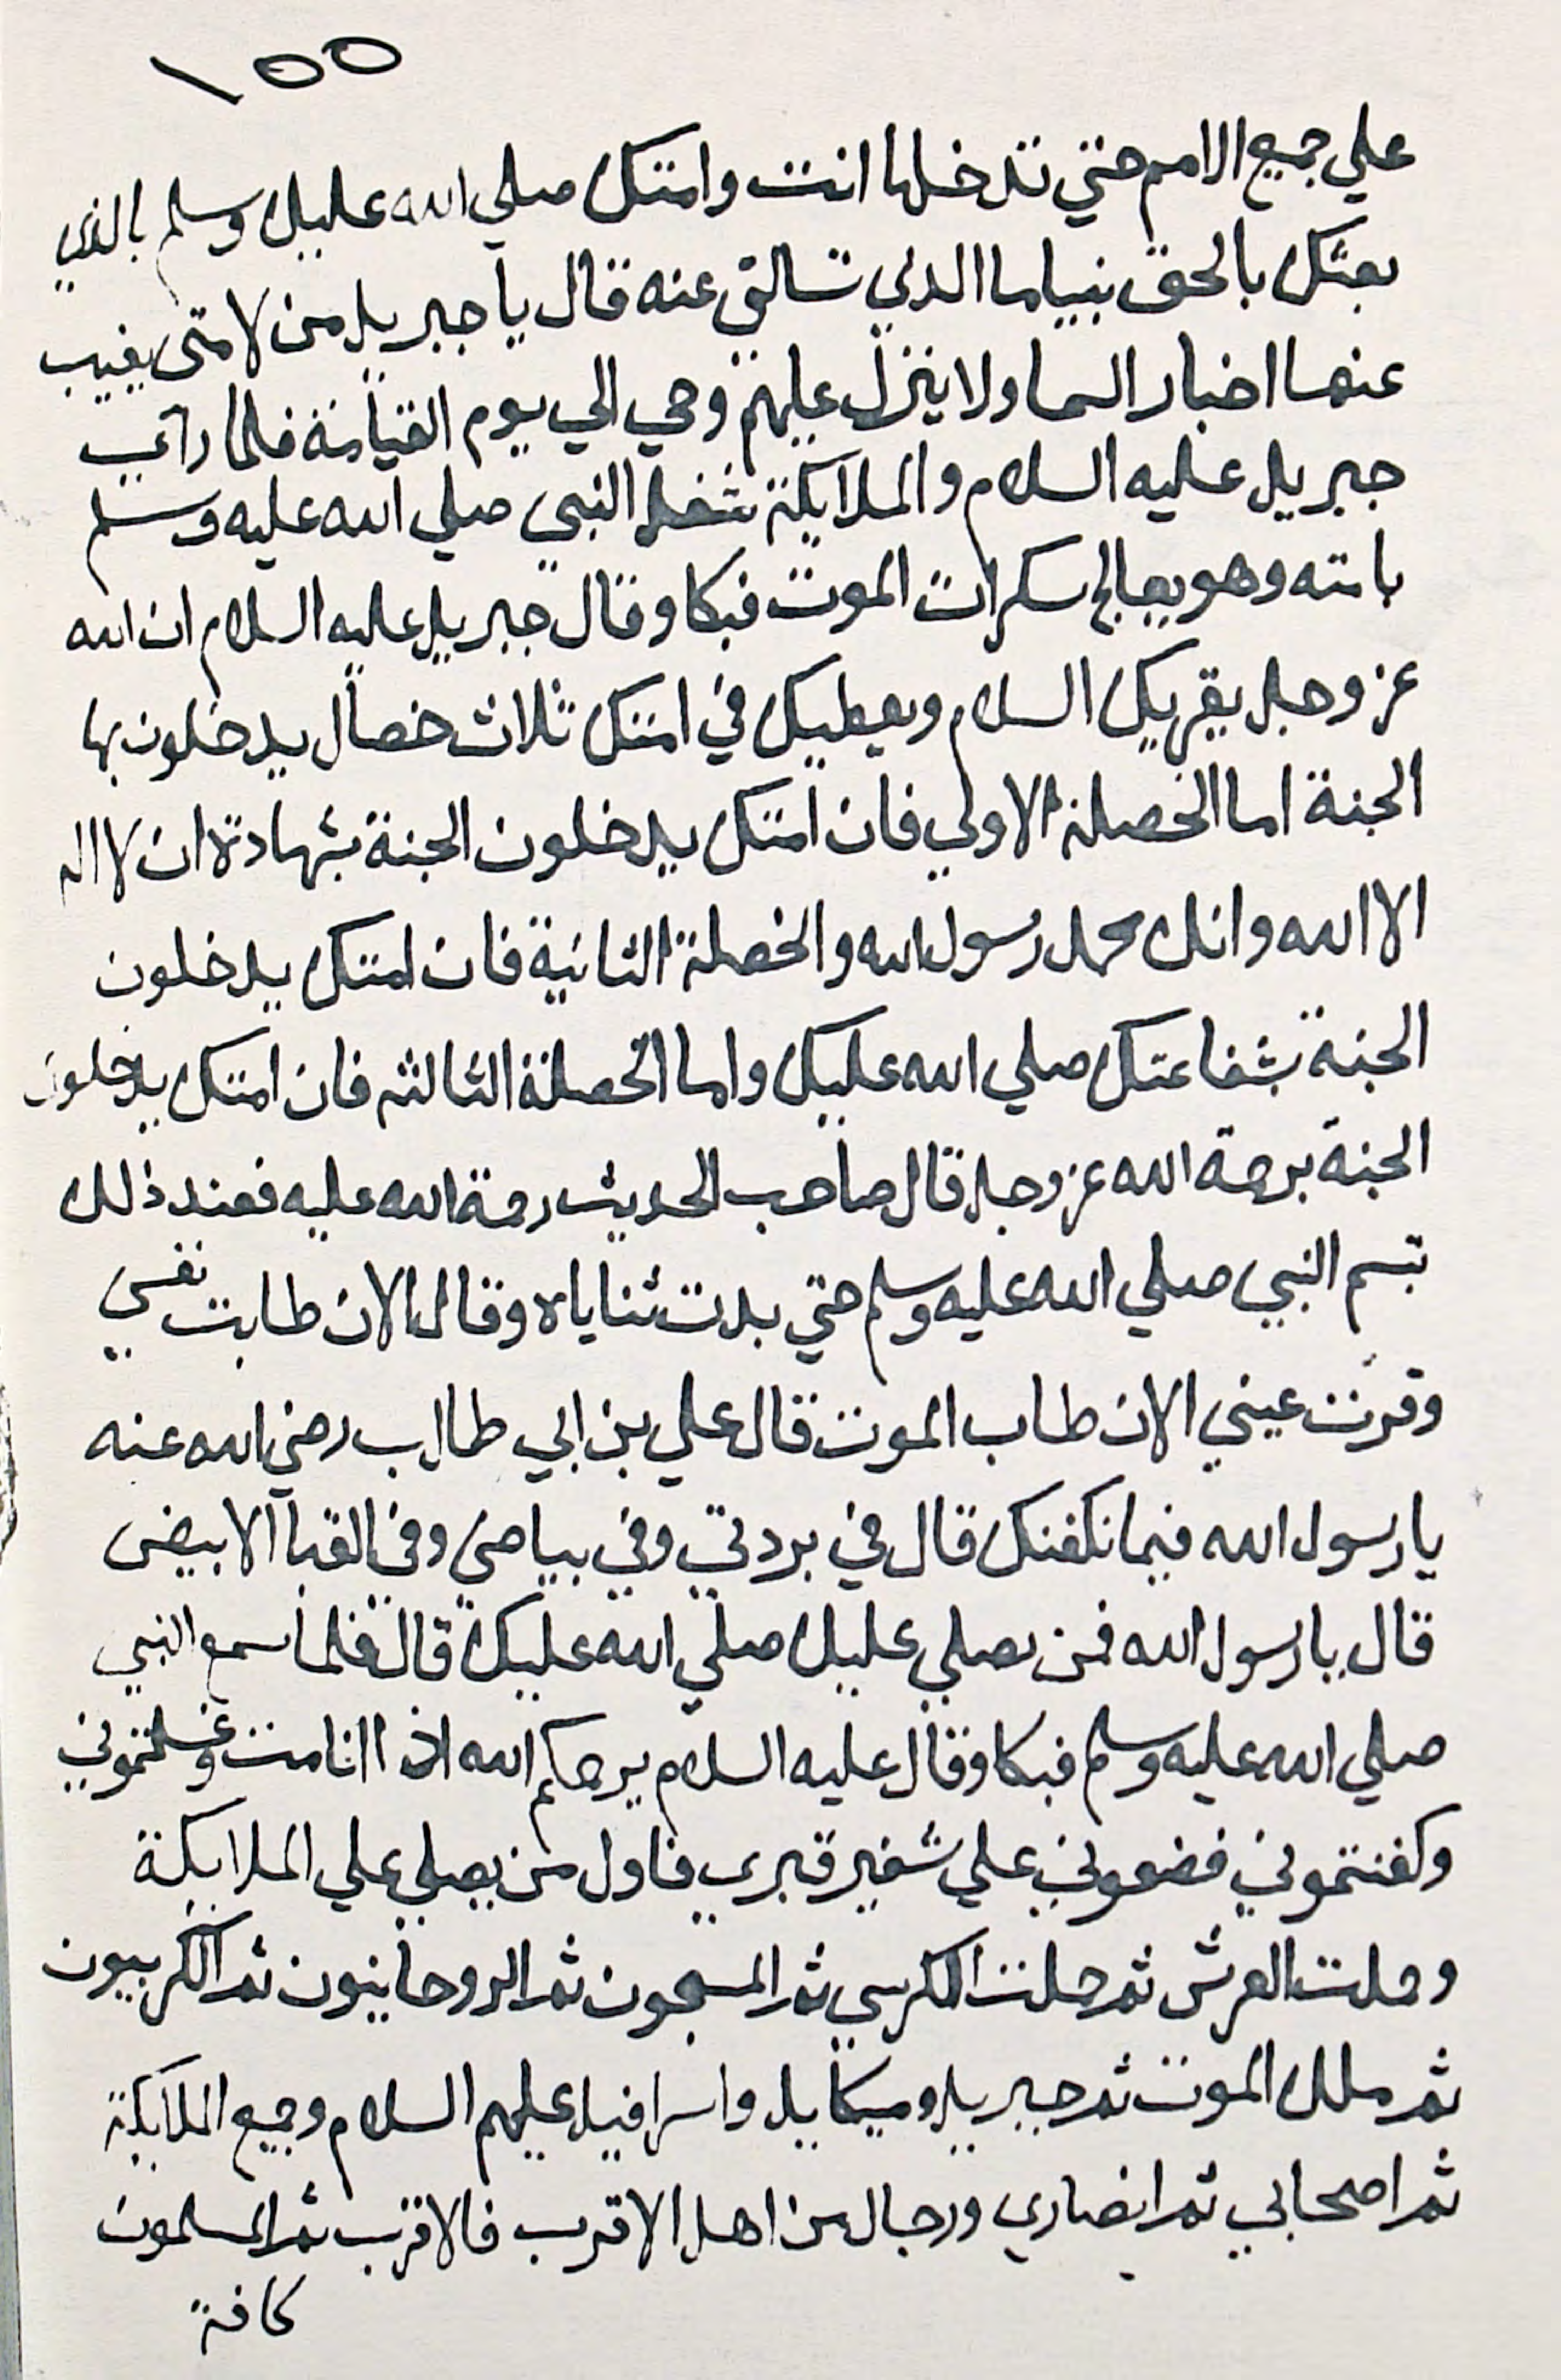 ١٥٥
علي جميع الامم حتي تدخلها انت وامتك صلي الله عليك وسلم بالذي
بعثك بالحق نبيا ما الذي تسالني عنه قال يا جبريل من لامتي يغيب
عنها اخبار السما ولا ينزل عليهم وحي الي يوم القيامة فلما راي
جبريل عليه السلام والملايكة شغل النبي صلي الله عليه وسلم
بامته وهو يعالج سكرات الموت فبكا وقال جبريل عليه السلام ان الله
عز وجل يقريك السلام ويعطيك في امتك ثلاث خصال يدخلون بها
الجنة اما الخصلة الاولي فان امتك يدخلون الجنة بشهادة ان لا اله
الا الله وانك محمد رسول الله والخصلة الثانية فان امتك يدخلون
الجنة بشفاعتك صلي الله عليك واما الخصلة الثالثه فان امتك يدخلون
الجنة برحمة الله عز وجل قال صاحب الحديث رحمة الله عليه فعند ذلك
تبسم النبي صلي الله عليه وسلم حتي بدت ثناياه وقال الان طابت نفسي
وقرت عيني الان طاب الموت قال علي بن ابي طالب رضي الله عنه
يا رسول الله فيما نكفنك قال في بردتي وفي بياضي وفي القبا الابيض
قال يا رسول الله فمن يصلي عليك صلي الله عليك قال فلما سمع النبي
صلي الله عليه وسلم فبكا وقال عليه السلام يرحمكم الله اذا انامت وغسلتموني
وكفنتموني فضعوني علي شفير قبري فاول من يصلي علي الملايكة
وحملت العرش ثم حملت الكرسي ثم المسبحون ثم الروحانيون ثم الكربيون
ثم ملك الموت ثم جبريل وميكاييل واسرافيل عليهم السلام وجميع الملايكة
ثم اصحابي ثم انصاري ورجال من اهل الاقرب فالاقرب ثم المسلمون
كافة